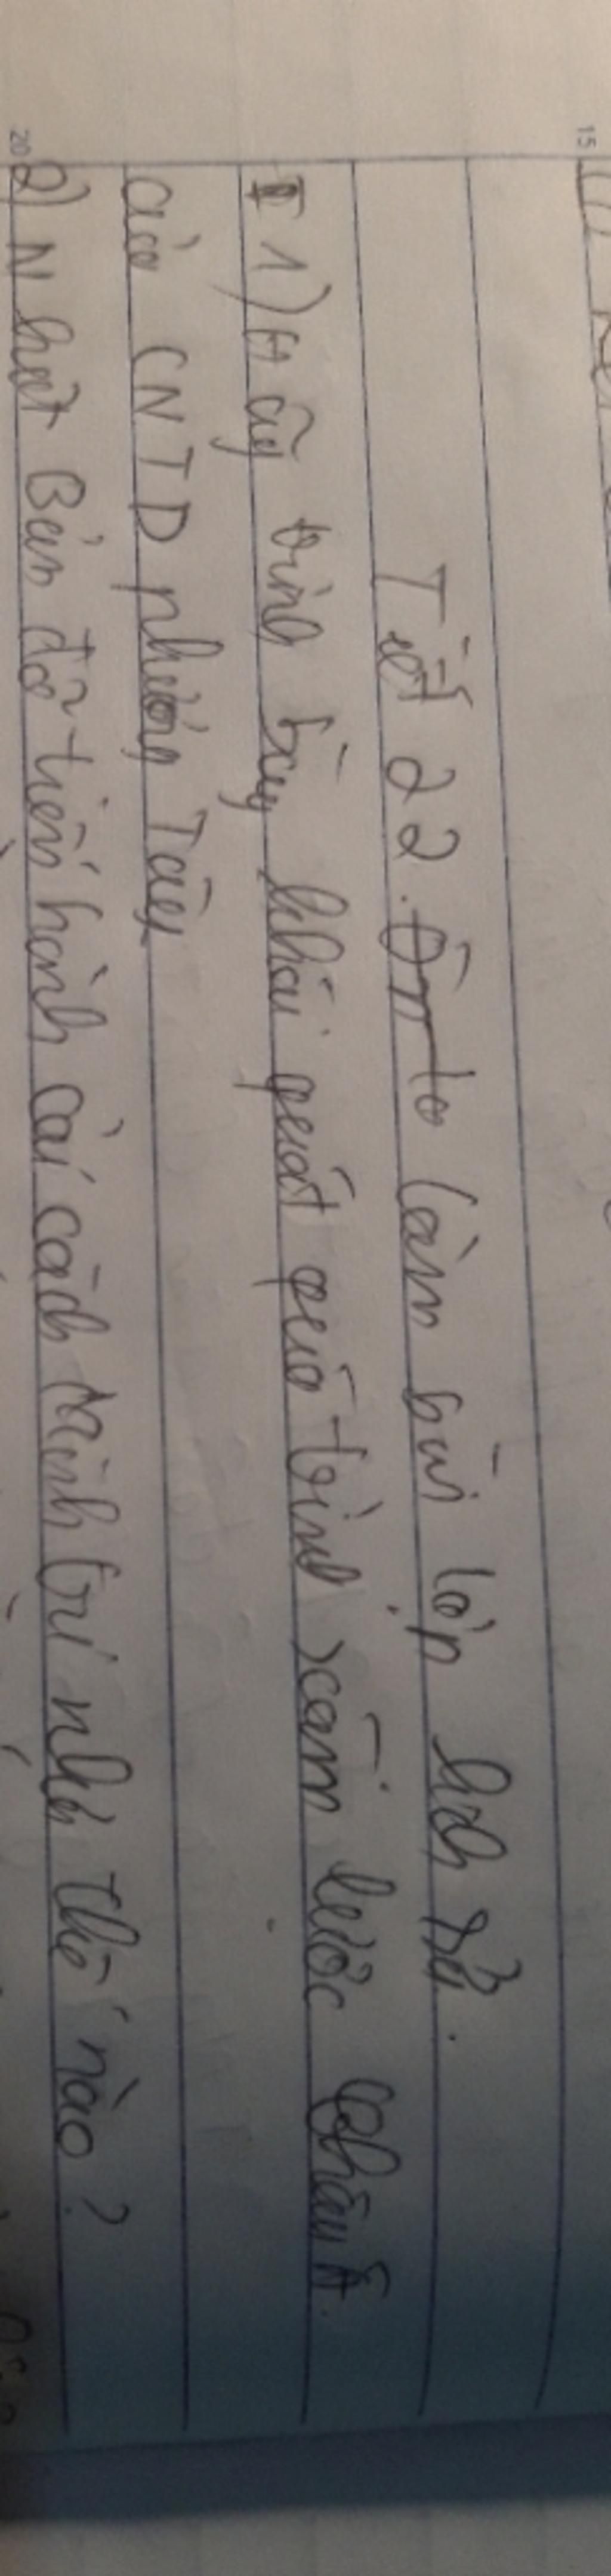 Tiết 22. Ôn to làm bài tập lịch sử.
I 1) Hãy trình bày khái quát quá trình xâm lược Châu Á.
của CNTD phương Tây
2) Nhật Bản đã tiến hành cải cách Minh Trị như thế nào?
15
20